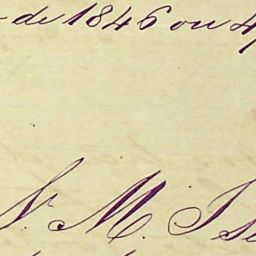 de 1846 ou 4
N. M. Is